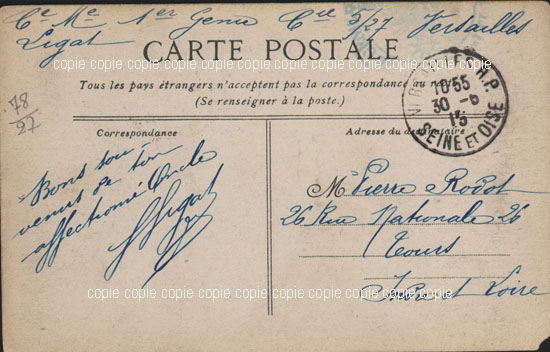 Ce Me 1er Genie Cie 5/27 Versailles
Ligat
CARTE POSTALE
copie copie copie copie copie copie copie copie
Tous les pays étrangers n'acceptent pas la correspondance au
(Se renseigner à la poste.)
10·55
30 -6
13
SEINE ET OISE
78
27
Correspondance
Adresse du destinataire
copie copie copie copie copie copie copie copie
Bons sou-
venirs de ton
affectionné Oncle
Ligat
Mr Pierre Rodot
26 Rue Nationale 26
Tours
Indre et Loire
copie copie copie copie copie copie copie copie